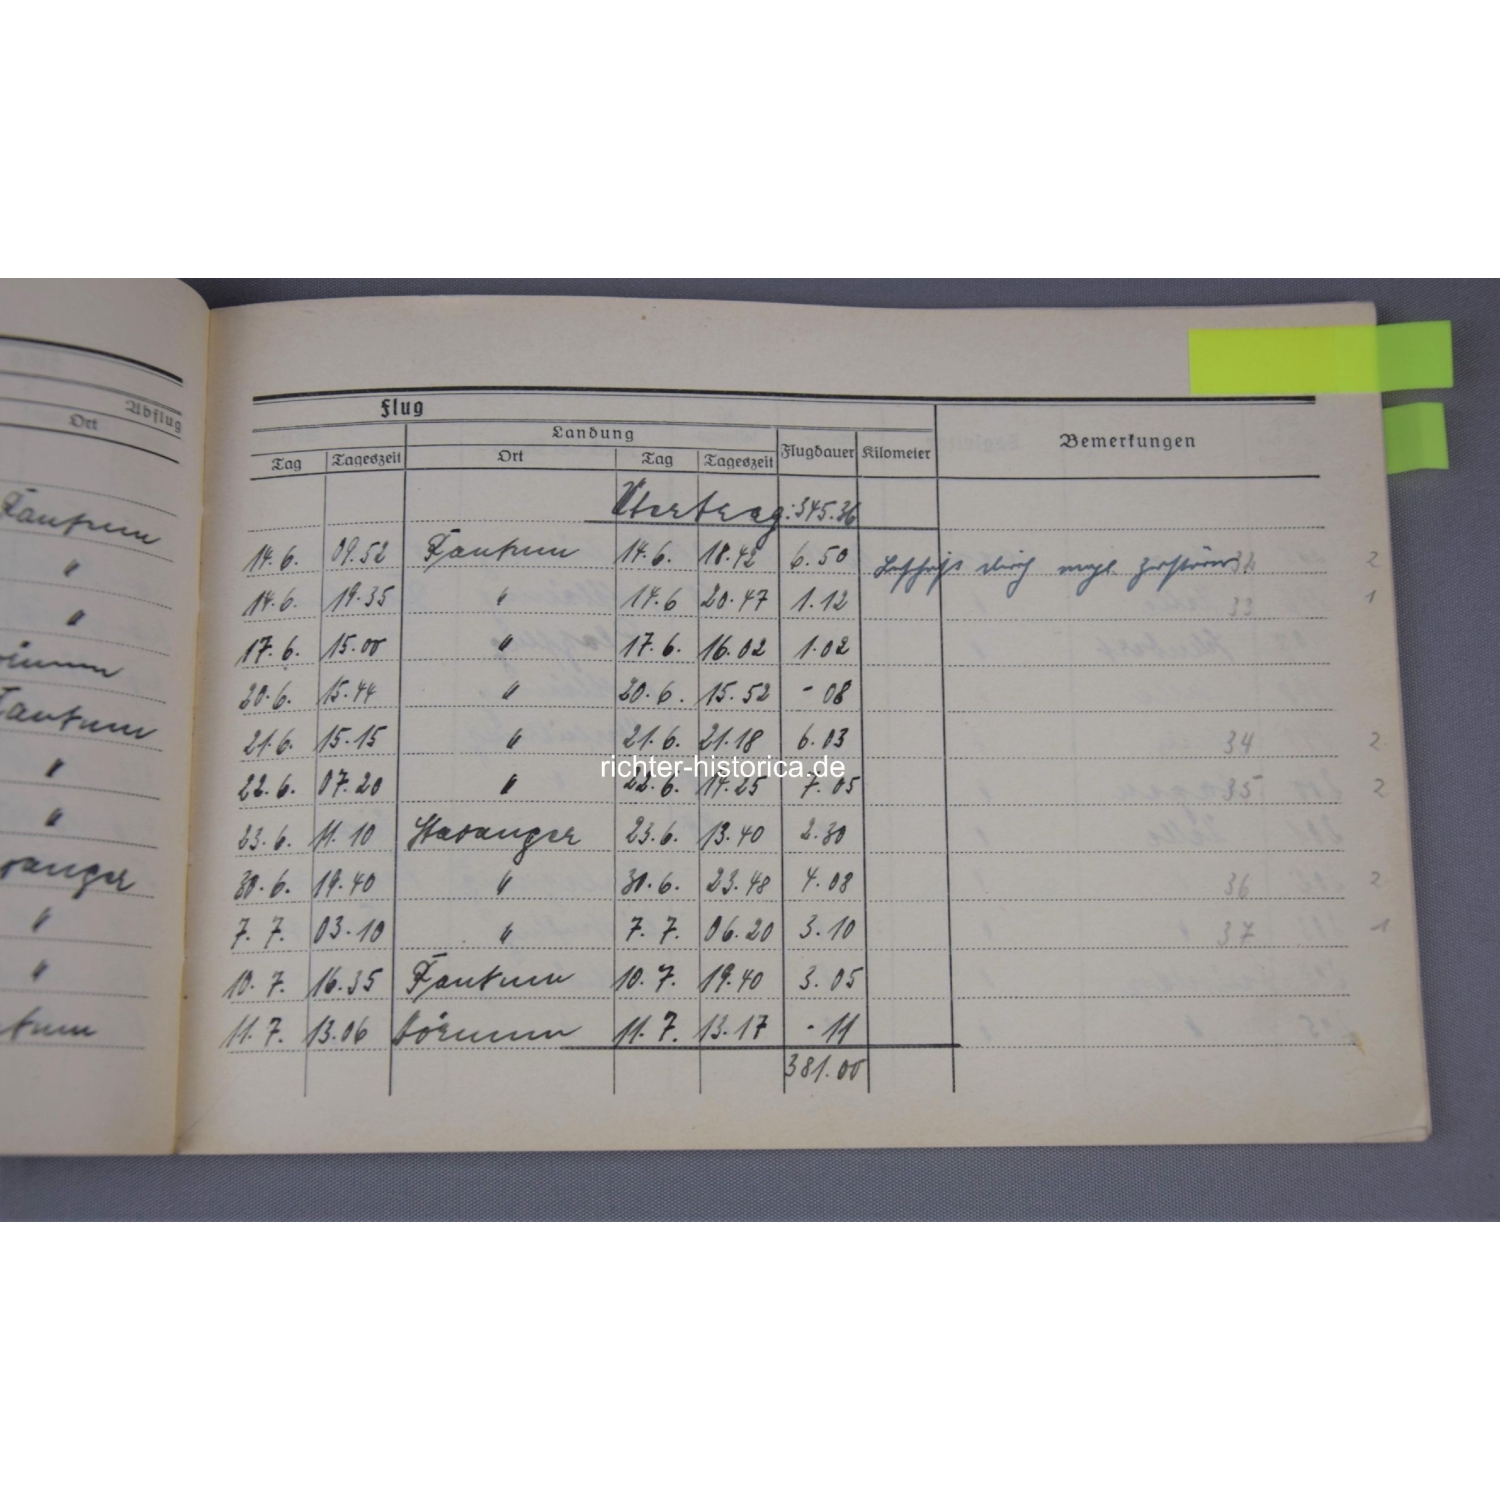 Abflug
Ort
Rantum
"
"
Rantum
"
"
"
"
Flug
Landung
Tag Tageszeit Ort Tag Tageszeit Flugdauer Kilometer Bemerkungen
Übertrag: 345.36
14.6. 09.52 Rantum 14.6. 18.42 6.50 durch zerstörer 32 2
14.6. 19.35 " 14.6 20.47 1.12 33 1
17.6. 15.00 " 17.6. 16.02 1.02
20.6. 15.44 " 20.6. 15.52 - 08
21.6. 15.15 " 21.6. 21.18 6.03 34 2
richter-historica.de
22.6. 07.20 " 22.6. 14.25 7.05 35 2
23.6. 11.10 Stavanger 23.6. 13.40 2.30
30.6. 19.40 " 30.6. 23.48 4.08 36 2
7.7. 03.10 " 7.7. 06.20 3.10 37 1
10.7. 16.35 Rantum 10.7. 19.40 3.05
11.7. 13.06 Hörnum 11.7. 13.17 - 11
381.00